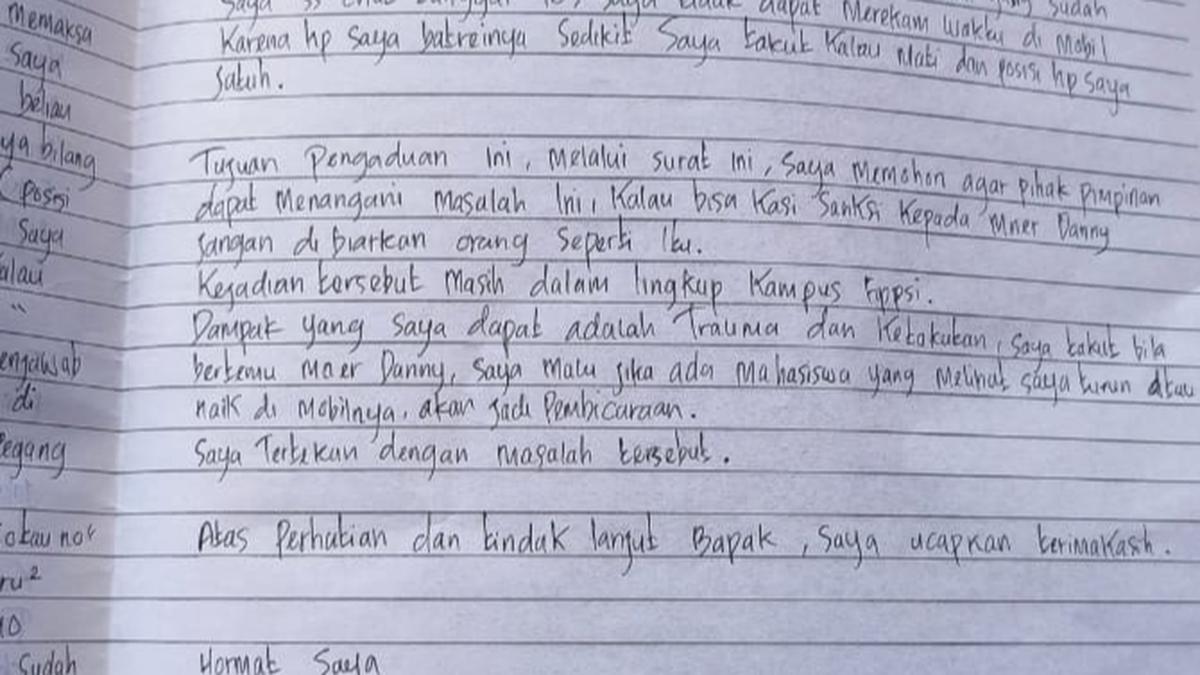 memaksa
Saya
beliau
ya bilang
posisi
Saya
alau
"
engawab
di
egang
atau no
ru²
10
Sudah
dapat Merekam waktu di Mobil
Karena hp Saya batreinya Sedikit Saya takut Kalau Mati dan posisi hp Saya
Jatuh.
Tujuan Pengaduan Ini, Melalui surat Ini, Saya Memohon agar pihak Pimpinan
dapat Menangani Masalah Ini, Kalau bisa Kasi Sanksi Kepada Mner Danny
Jangan di biarkan orang Seperti Itu.
Kejadian tersebut Masih dalam lingkup Kampus Fippsi.
Dampak yang Saya dapat adalah Trauma dan Ketakutan, Saya takut bila
bertemu Mner Danny, Saya Malu jika ada Mahasiswa yang Melihat saya turun atau
naik di Mobilnya, akan jadi Pembicaraan.
Saya Tertekan dengan masalah tersebut.
Atas Perhatian dan tindak lanjut Bapak, Saya ucapkan terimakasih.
Hormat Saya